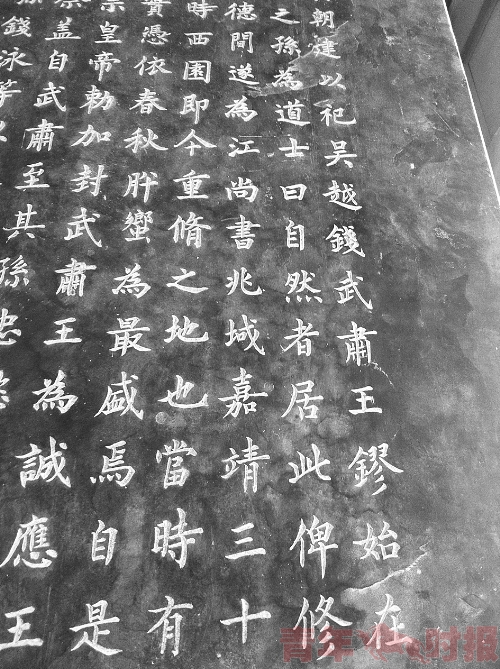 朝建以祀吳越錢武肅王鏐始在
之孫為道士曰自然者居此俾修
德間遂為江尚書兆域嘉靖三十
時西園即今重脩之地也當時有
實憑依春秋肸蠁為最盛焉自是
宗皇帝勅加封武肅王為誠應王
蓋自武肅至其孫忠
錢泳等
青年时报